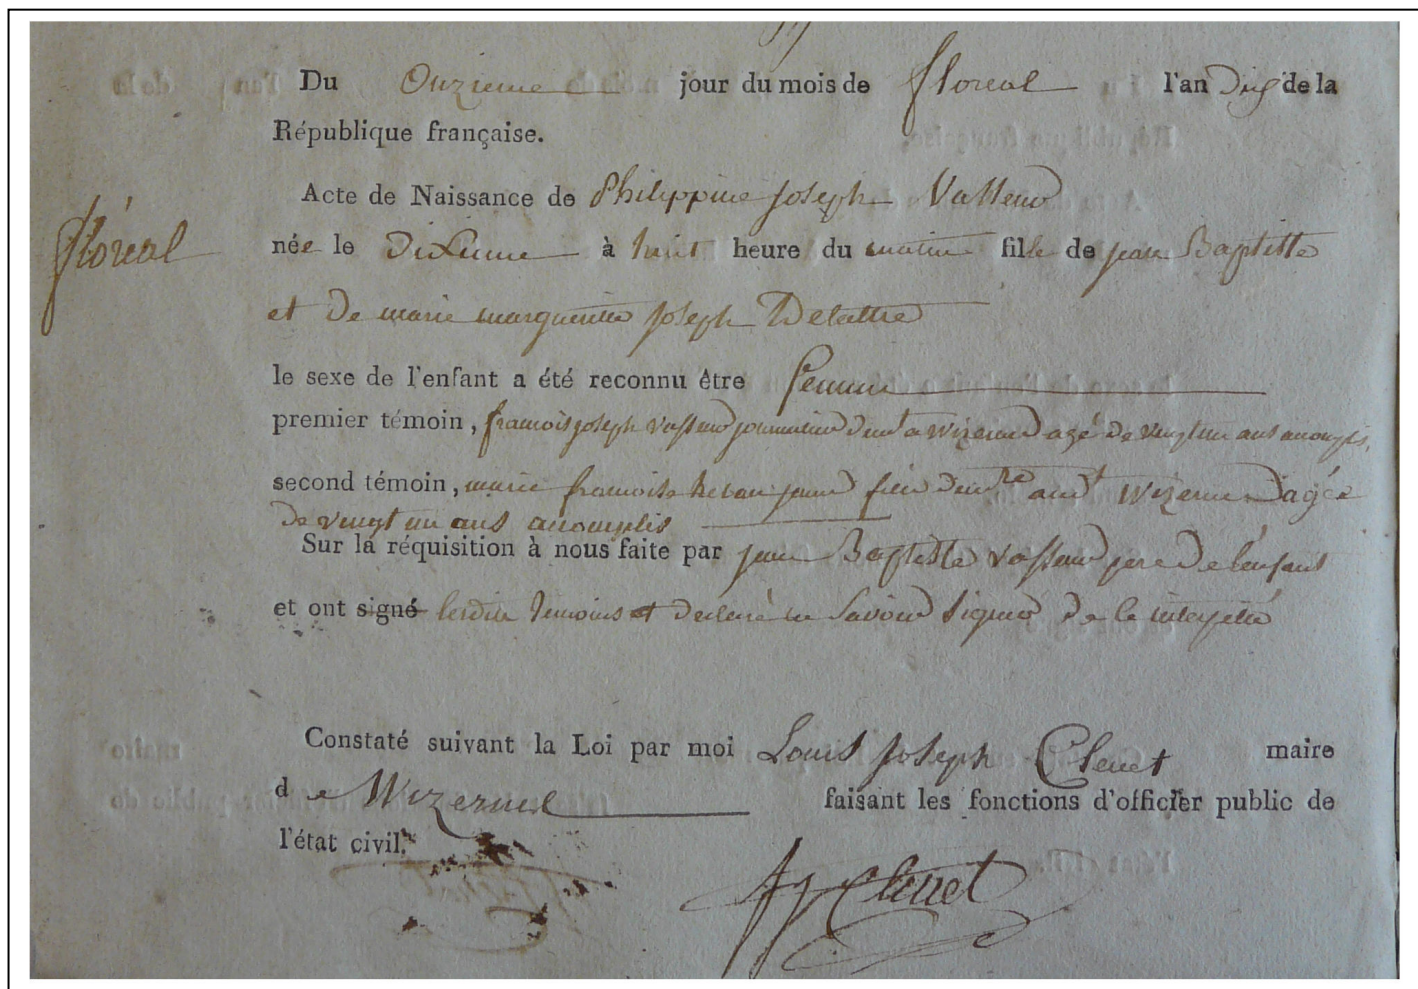 Du Onzieme jour du mois de floreal l'an Dix de la
République française.
Acte de Naissance de Philippine Joseph Vasseur
floréal
née le Dixieme à huit heure du matin fille de jean Baptiste
et De marie marguerite Joseph Delattre
le sexe de l'enfant a été reconnu être femme
premier témoin, francois joseph vasseur journalier Demt a Wizerne agé De vingt un ans accomplis,
second témoin, marie francoise jeune fille Wizerne agée
De vingt un ans accomplis
Sur la réquisition à nous faite par jean Baptiste vasseur pere De l'enfant
et ont signé lesdits temoins et declaré ne Savoir Signer De ce interpellé
Constaté suivant la Loi par moi Louis Joseph Clenet maire
de Wizernes faisant les fonctions d'officier public de
l'état civil.